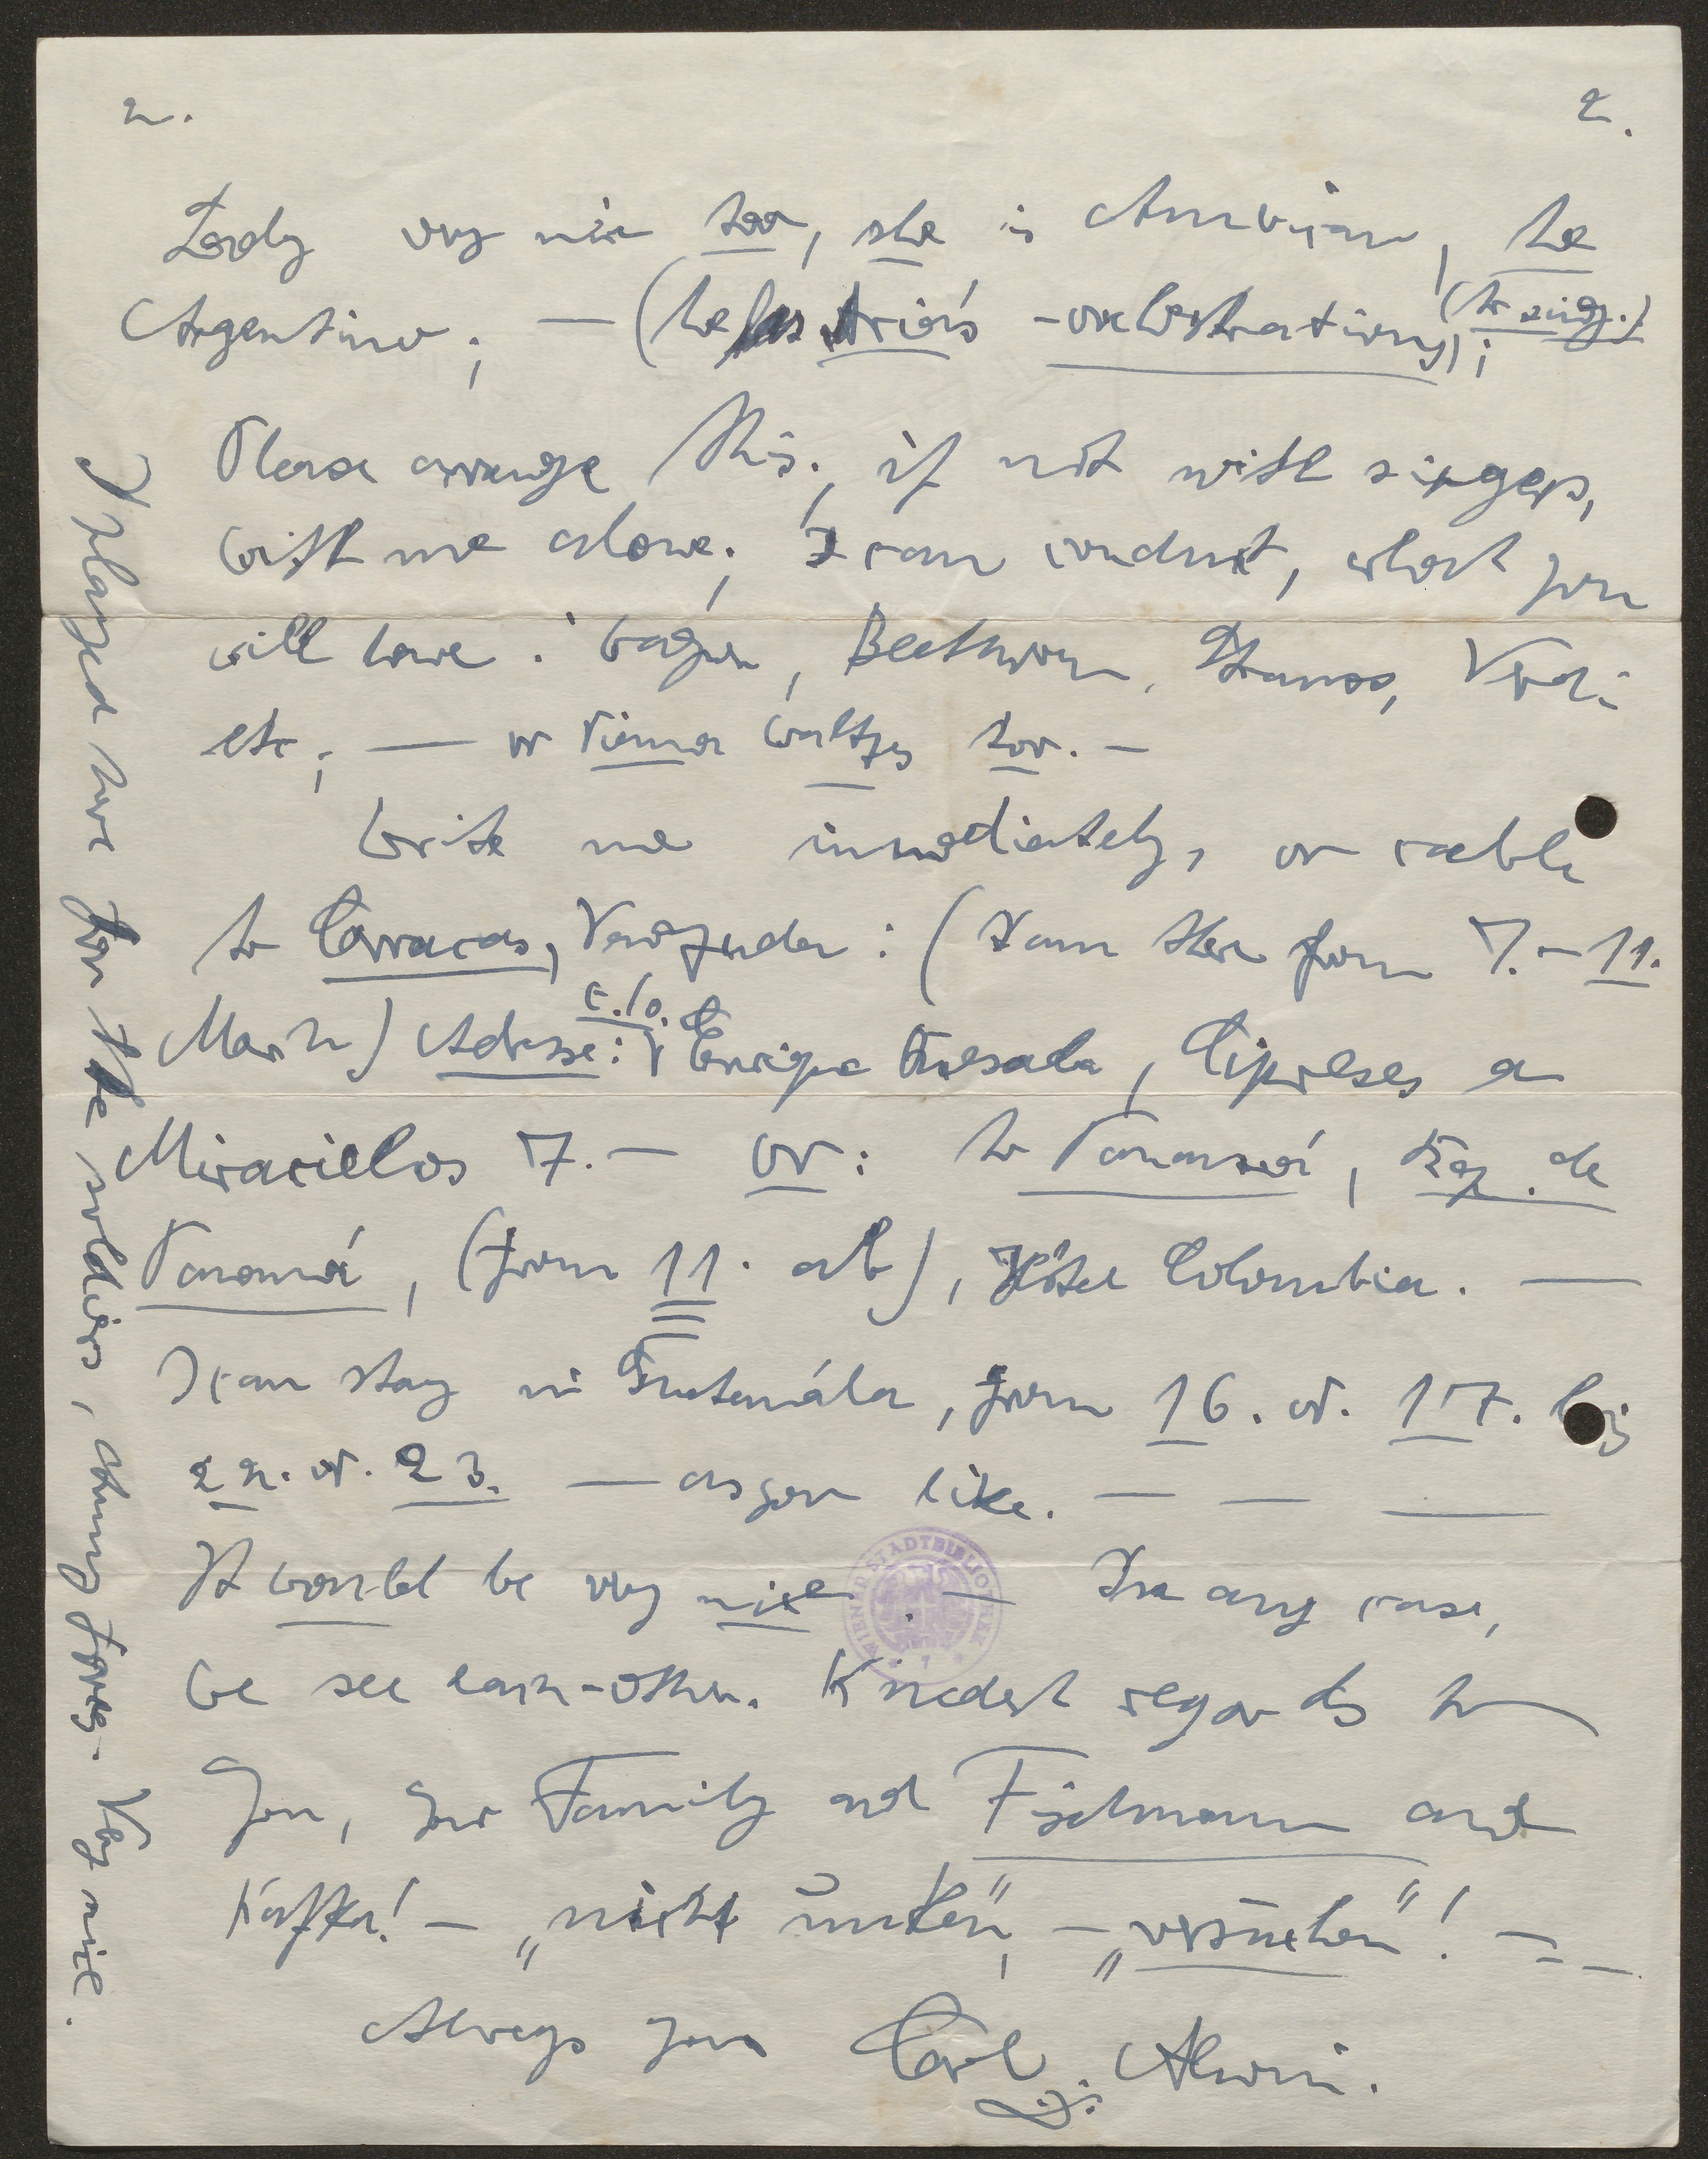 2. 2.
Lady very nice too, she is American, he
Argentino; — (he has Aria's - orchestrations); (to sing.)
Please arrange this; if not with singers,
with me alone; I can conduct, what you
will have: Wagner, Beethoven, Strauss, Verdi
etc; — or Viena Waltzes too. —
Write me immediately, or cable
to Caracas, Venezuela: (I am there from 7. - 11.
March) Adresse: c./o. Enrique Quesada, Cipreses a
Miracielos 7. — or: to Panamá, Rep. de
Panamá, (from 11. ab), Hôtel Colombia. —
I can stay in Guatemála, from 16. or. 17. bis
22. or. 23. — as you like. — — —
It would be very nice. — In any case,
We see each-other. Kindest regards to
you, your Family and Fischmann and
Kafka! — „nicht "," — „versuchen"! — — —
Always yours Carl Alwin.
I played here for the soldiers, army forces. Very nice.
WIENER STADTBIBLIOTHEK